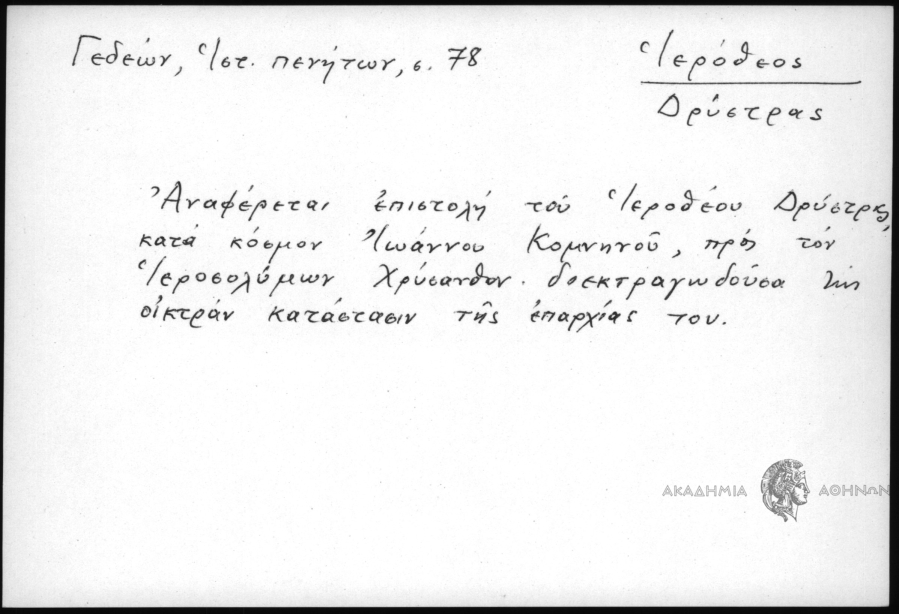 Γεδεών, Ἱστ. πενήτων, σ. 78
Ἱερόθεος
Δρύστρας
Ἀναφέρεται ἐπιστολή τοῦ Ἱεροθέου Δρύστρας,
κατά κόσμον Ἰωάννου Κομνηνοῦ, πρός τόν
Ἱεροσολύμων Χρύσανθον. διεκτραγωδοῦσα τήν
οἰκτράν κατάστασιν τῆς ἐπαρχίας του.
ΑΚΑΔΗΜΙΑ ΑΘΗΝΩΝ